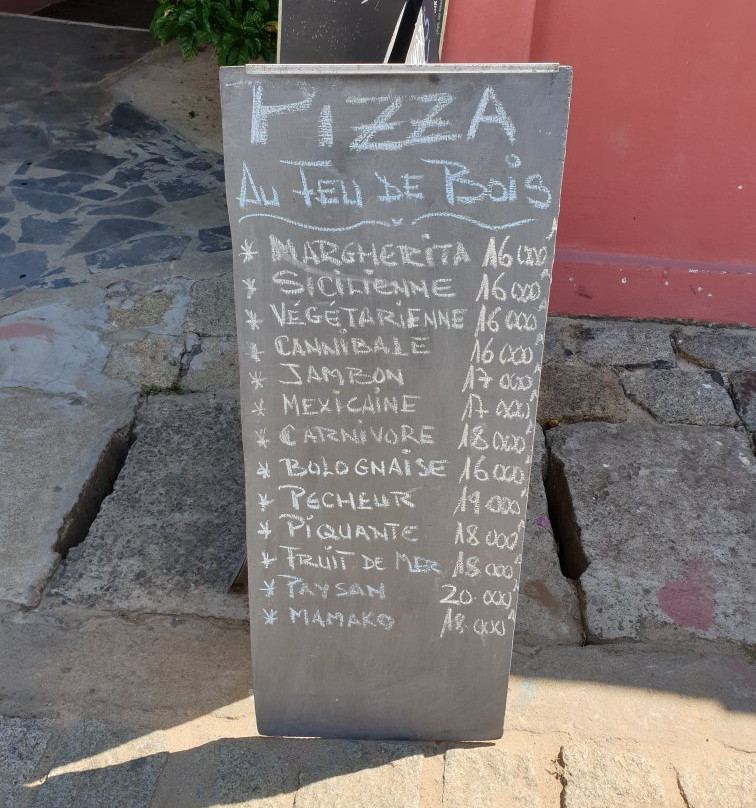 PIZZA
AU FEU DE BOIS
* MARGHERITA 16 000
* SICILIENNE 16 000
* VÉGÉTARIENNE 16 000
* CANNIBALE 16 000
* JAMBON 17 000
* MEXICAINE 17 000
* CARNIVORE 18 000
* BOLOGNAISE 16 000
* PECHEUR 19 000
* PIQUANTE 18 000
* FRUIT DE MER 18 000
* PAYSAN 20.000
* MAMAKO 18.000